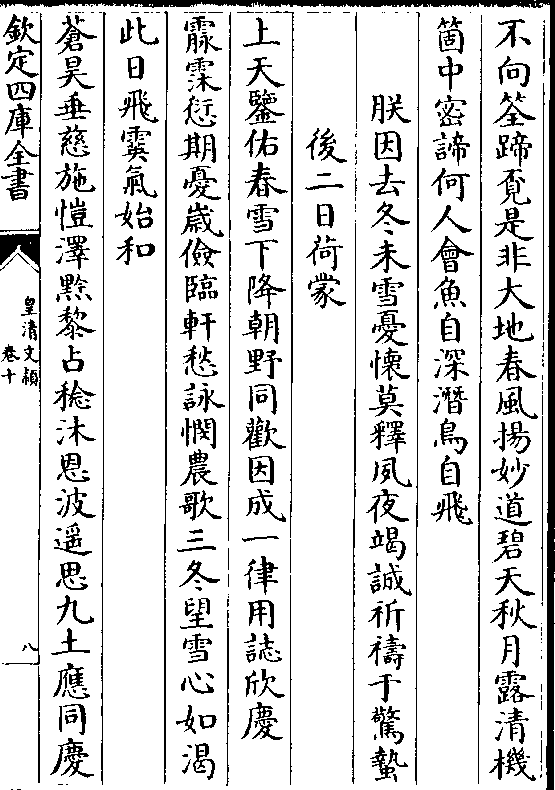 不向筌蹄覔是非大地春風揚妙道碧天秋月露清機
箇中密諦何人會魚自深潛鳥自飛
朕因去冬未雪憂懷莫釋夙夜竭誠祈禱于驚蟄
後二日荷蒙
上天鑒佑春雪下降朝野同歡因成一律用誌欣慶
霢霂愆期憂嵗儉臨軒愁詠憫農歌三冬望雪心如渴
此日飛霙氣始和
蒼昊垂慈施愷澤黔黎占稔沐恩波遥思九土應同慶
欽定四庫全書
皇清文穎
卷十
八